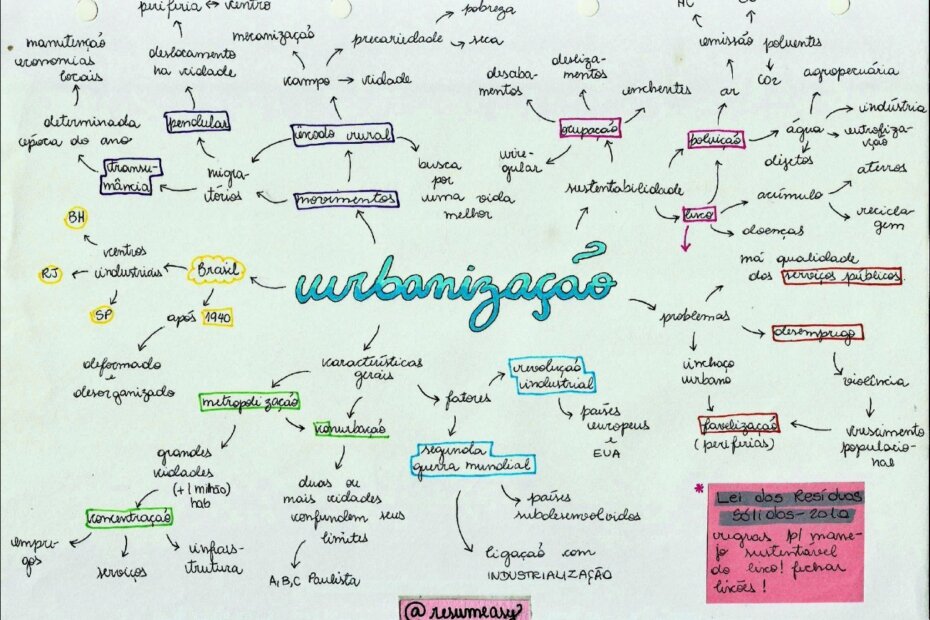 periferia ↔ centro
mecanização
pobreza
precariedade → seca
manutenção
economias
locais
deslocamento
na cidade
campo → cidade
determinada
época do ano
pendular
êxodo rural
transu-
mância
migra-
tórios
movimentos
busca
por
uma vida
melhor
desaba-
mentos
desliza-
mentos
enchentes
ocupação
irre-
gular
sustentabilidade
emissão poluentes
CO2
ar
agropecuária
poluição
água
indústria
eutrofiza-
ção
dejetos
lixo
acúmulo
aterros
recicla-
gem
doenças
BH
centros
industriais
RJ
SP
Brasil
após 1940
deformado
e
desorganizado
urbanização
má qualidade
dos serviços públicos
problemas
desemprego
inchaço
urbano
violência
favelização
(periferias)
crescimento
populacio-
nal
características
gerais
metropolização
conurbação
fatores
revolução
industrial
países
europeus
e
EUA
segunda
guerra mundial
países
subdesenvolvidos
ligação com
INDUSTRIALIZAÇÃO
grandes
cidades
(+1 milhão)
hab
concentração
empre-
gos
serviços
infraes-
trutura
duas ou
mais cidades
confundem seus
limites
A,B,C Paulista
* Lei dos Resíduos
Sólidos-2010
regras p/ mane-
jo sustentável
do lixo! fechar
lixões!
@resumeasy